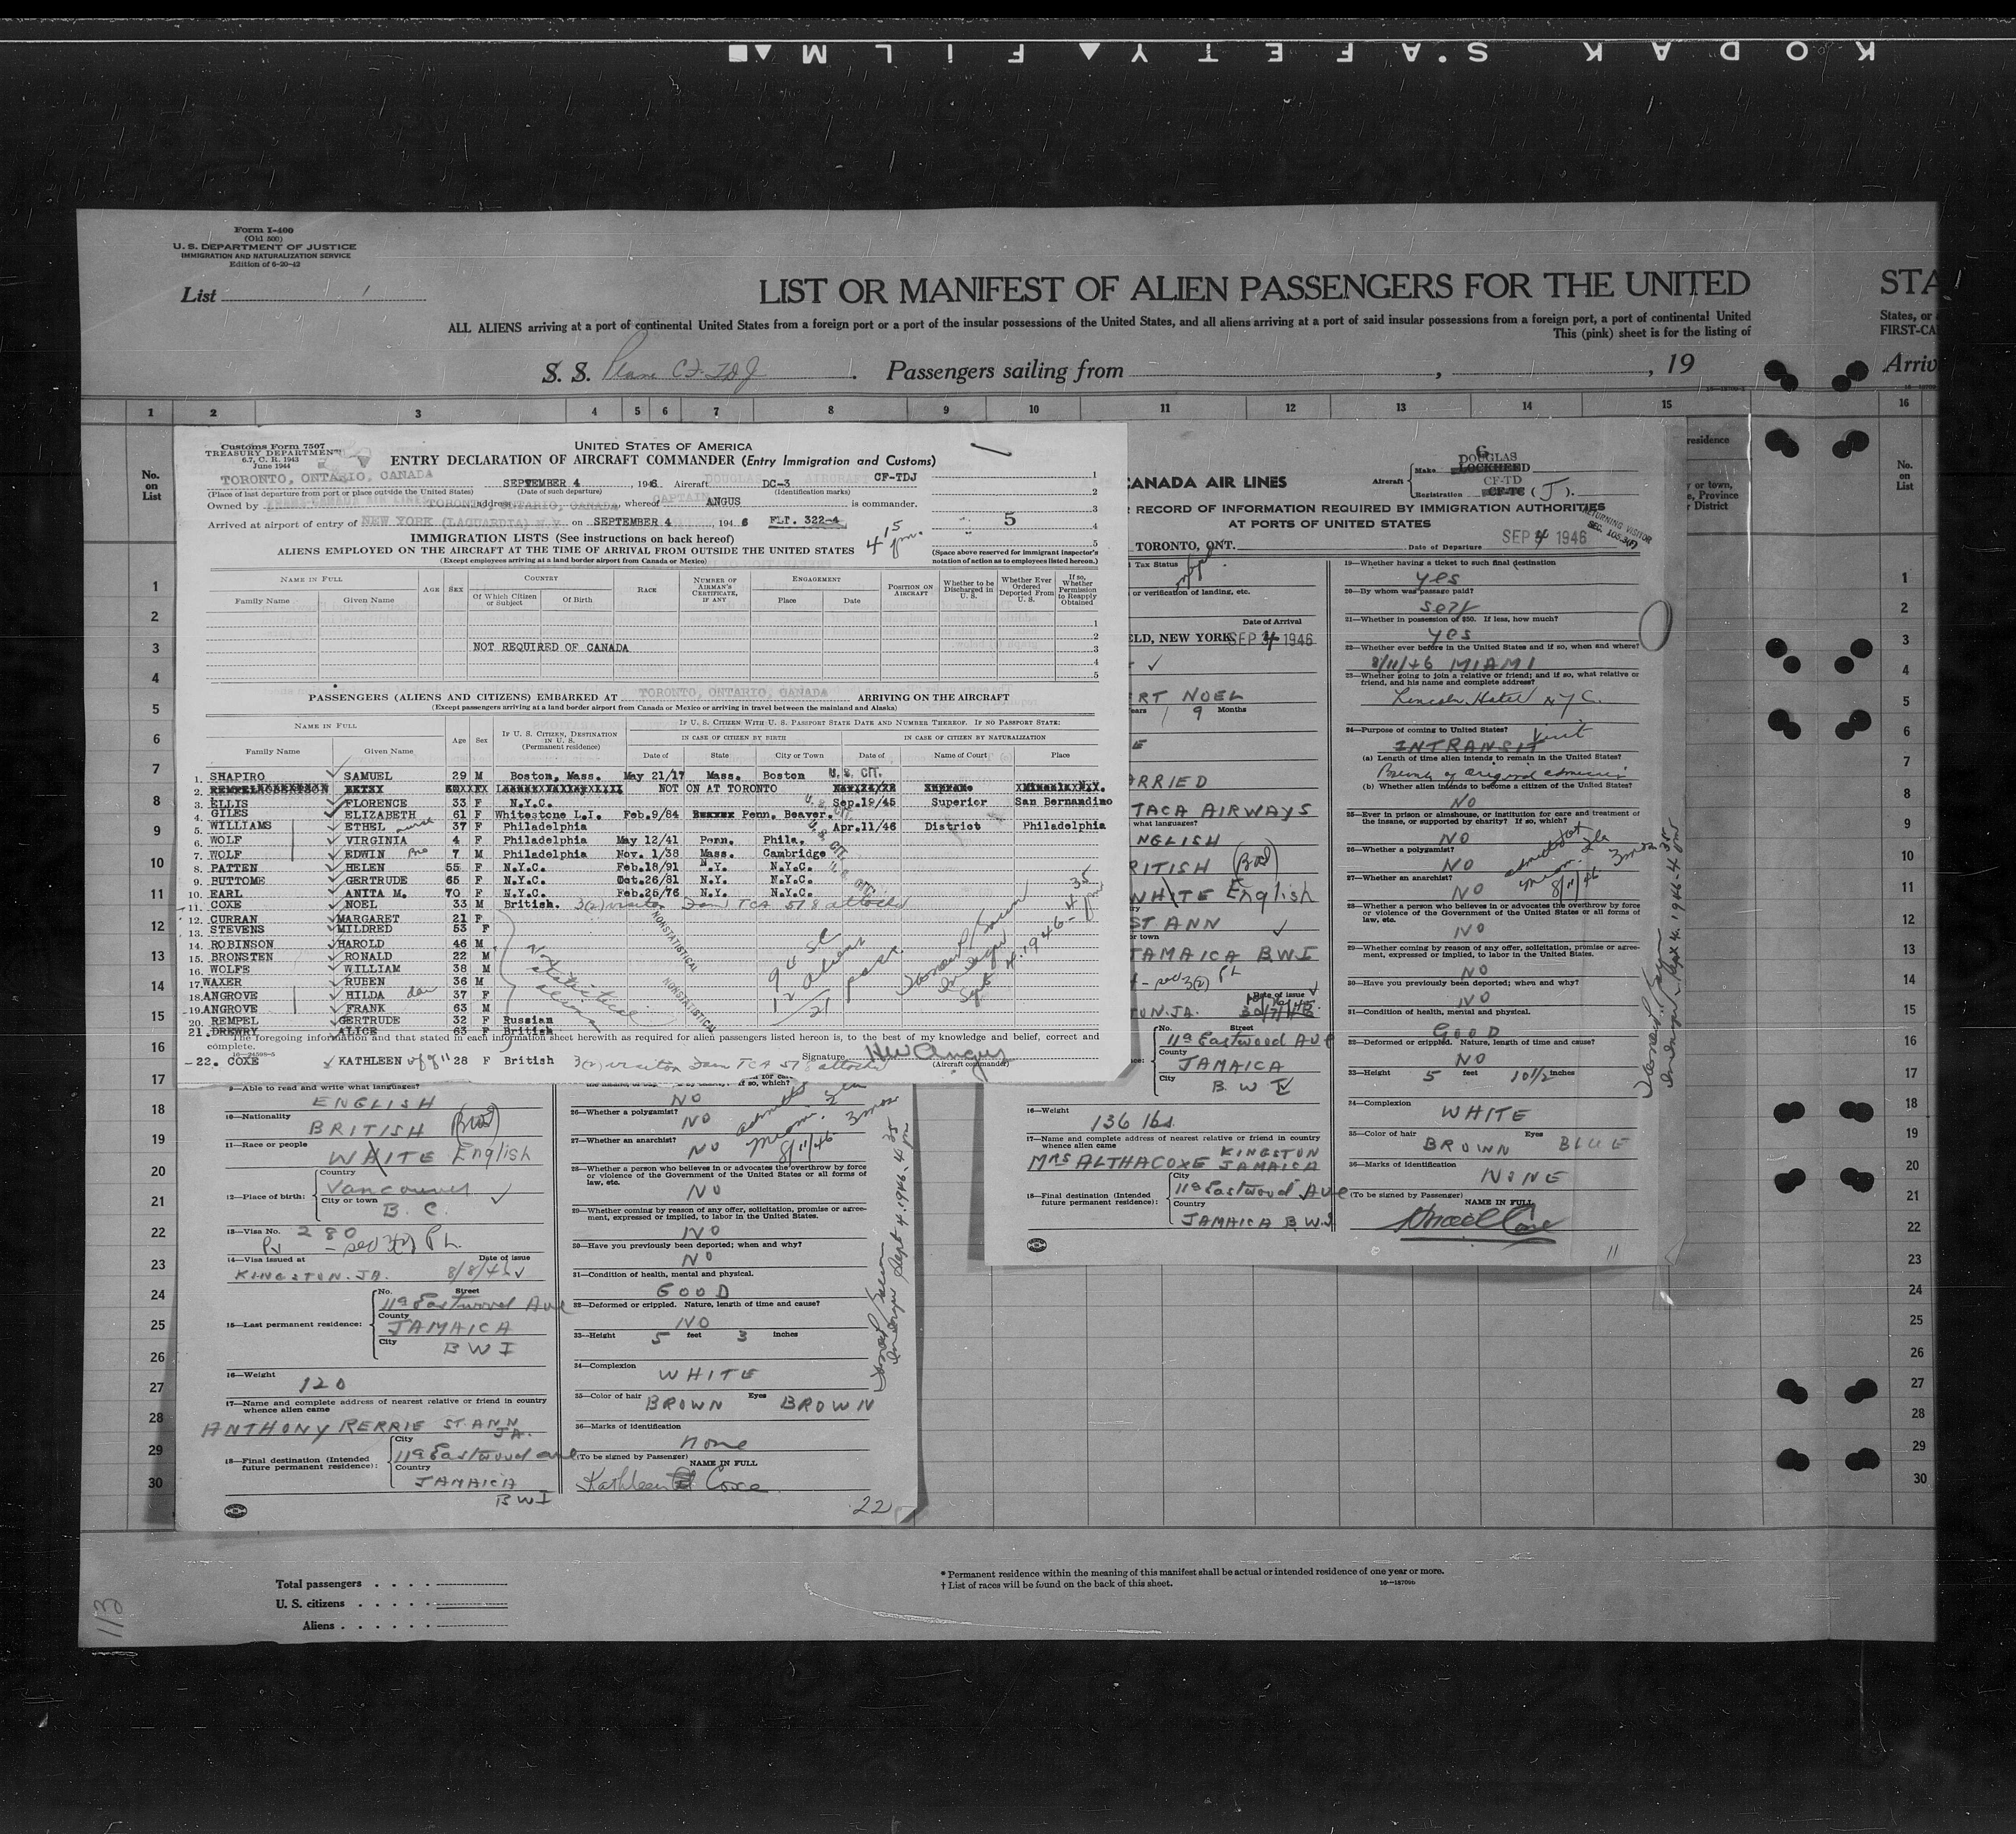 KODAK SAFETY FILM
Form I-400
(Old 500)
U. S. DEPARTMENT OF JUSTICE
IMMIGRATION AND NATURALIZATION SERVICE
Edition of 6-20-42
List 1
LIST OR MANIFEST OF ALIEN PASSENGERS FOR THE UNITED STA
ALL ALIENS arriving at a port of continental United States from a foreign port or a port of the insular possessions of the United States, and all aliens arriving at a port of said insular possessions from a foreign port, a port of continental United States, or
This (pink) sheet is for the listing of FIRST-CA
S. S. Plane CF-TDJ. Passengers sailing from , , 19 Arriv
1 2 3 4 5 6 7 8 9 10 11 12 13 14 15 16
No. on List
Customs Form 7507
TREASURY DEPARTMENT
6.7, C. R. 1943
June 1944
UNITED STATES OF AMERICA
ENTRY DECLARATION OF AIRCRAFT COMMANDER (Entry Immigration and Customs)
TORONTO, ONTARIO, CANADA SEPTEMBER 4, 1946 Aircraft DC-3 CF-TDJ
(Place of last departure from port or place outside the United States) (Date of such departure) (Identification marks)
Owned by TRANS-CANADA AIR LINES address TORONTO, ONTARIO, CANADA, whereof CAPTAIN ANGUS is commander.
Arrived at airport of entry of NEW YORK (LAGUARDIA) N.Y. on SEPTEMBER 4, 1946 FLT. 322-4
4 15 pm.
5
IMMIGRATION LISTS (See instructions on back hereof)
ALIENS EMPLOYED ON THE AIRCRAFT AT THE TIME OF ARRIVAL FROM OUTSIDE THE UNITED STATES
(Except employees arriving at a land border airport from Canada or Mexico)
(Space above reserved for immigrant inspector's notation of action as to employees listed hereon.)
NAME IN FULL AGE SEX COUNTRY RACE NUMBER OF AIRMAN'S CERTIFICATE, IF ANY ENGAGEMENT POSITION ON AIRCRAFT Whether to be Discharged in U. S. Whether Ever Ordered Deported From U. S. If so, Whether Permission to Reapply Obtained
Family Name Given Name Of Which Citizen or Subject Of Birth Place Date
NOT REQUIRED OF CANADA
PASSENGERS (ALIENS AND CITIZENS) EMBARKED AT TORONTO, ONTARIO, CANADA ARRIVING ON THE AIRCRAFT
(Except passengers arriving at a land border airport from Canada or Mexico or arriving in travel between the mainland and Alaska)
NAME IN FULL Age Sex IF U. S. CITIZEN, DESTINATION IN U. S. (Permanent residence) IF U. S. CITIZEN WITH U. S. PASSPORT STATE DATE AND NUMBER THEREOF. IF NO PASSPORT STATE:
IN CASE OF CITIZEN BY BIRTH IN CASE OF CITIZEN BY NATURALIZATION
Family Name Given Name Date of State City or Town Date of Name of Court Place
1. SHAPIRO SAMUEL 29 M Boston, Mass. May 21/17 Mass. Boston U.S. CIT.
2. BETSY NOT ON AT TORONTO
3. ELLIS FLORENCE 33 F N.Y.C. Sep.19/45 Superior San Bernandino
4. GILES ELIZABETH 61 F Whitestone L.I. Feb.9/84 Penn. Beaver.
5. WILLIAMS ETHEL nurse 37 F Philadelphia Apr.11/46 District Philadelphia
6. WOLF VIRGINIA 4 F Philadelphia May 12/41 Penn. Phila.
7. WOLF EDWIN Bro 7 M Philadelphia Nov. 1/38 Mass. Cambridge
8. PATTEN HELEN 55 F N.Y.C. Feb.18/91 N.Y. N.Y.C.
9. BUTTOME GERTRUDE 65 F N.Y.C. Oct.26/81 N.Y. N.Y.C.
10. EARL ANITA M. 70 F N.Y.C. Feb.25/76 N.Y. N.Y.C.
11. COXE NOEL 33 M British. 3(2) visitor TCA 518 attached
12. CURRAN MARGARET 21 F
13. STEVENS MILDRED 53 F
14. ROBINSON HAROLD 46 M
15. BRONSTEN RONALD 22 M
16. WOLFE WILLIAM 38 M
17. WAXER RUBEN 36 M
18. ANGROVE HILDA 37 F
19. ANGROVE FRANK 63 M
20. REMPEL GERTRUDE 32 F Russian
21. DREWRY ALICE 63 F British
Not statistical aliens
NONSTATISTICAL
NONSTATISTICAL
9 U SC
12 aliens
1/21 pass.
Sept 4. 1946 - 4 35 pm
The foregoing information and that stated in each information sheet herewith as required for alien passengers listed hereon is, to the best of my knowledge and belief, correct and complete.
22. COXE KATHLEEN wf of 11 28 F British 3(2) visitor TCA 518 attached
Signature HW Angus
(Aircraft commander)
CANADA AIR LINES
RECORD OF INFORMATION REQUIRED BY IMMIGRATION AUTHORITIES
AT PORTS OF UNITED STATES
Aircraft Make DOUGLAS LOCKHEED
Registration CF-TD CF-TC (J).
TORONTO, ONT. Date of Departure SEP 4 1946
RETURNING VISITOR SEC. 105.3(F)
Tax Status
or verification of landing, etc.
Date of Arrival
ELD, NEW YORK SEP 4 1946
ERT NOEL
ears 9 Months
ARRIED
TACA AIRWAYS
what languages?
NGLISH
RITISH (Brit)
WHITE English
ST ANN
or town
JAMAICA BWI
Date of issue
TON.JA.
No. Street
11a Eastwood Ave
County
JAMAICA
City
B W I
16—Weight
136 lbs.
17—Name and complete address of nearest relative or friend in country whence alien came
MRS ALTHACOXE KINGSTON JAMAICA
18—Final destination (Intended future permanent residence):
City
11a Eastwood Ave
Country
JAMAICA B.W.I
19—Whether having a ticket to such final destination
yes
20—By whom was passage paid?
self
21—Whether in possession of $50. If less, how much?
yes
22—Whether ever before in the United States and if so, when and where?
8/11/46 MIAMI
23—Whether going to join a relative or friend; and if so, what relative or friend, and his name and complete address?
Lincoln Hotel NYC.
24—Purpose of coming to United States?
INTRANSIT visit
(a) Length of time alien intends to remain in the United States?
(b) Whether alien intends to become a citizen of the United States?
NO
25—Ever in prison or almshouse, or institution for care and treatment of the insane, or supported by charity? If so, which?
NO
26—Whether a polygamist?
NO
27—Whether an anarchist?
NO
8/11/46 3 mos
28—Whether a person who believes in or advocates the overthrow by force or violence of the Government of the United States or all forms of law, etc.
NO
29—Whether coming by reason of any offer, solicitation, promise or agreement, expressed or implied, to labor in the United States.
NO
30—Have you previously been deported; when and why?
NO
31—Condition of health, mental and physical.
GOOD
32—Deformed or crippled. Nature, length of time and cause?
NO
33—Height 5 feet 10 1/2 inches
34—Complexion
WHITE
35—Color of hair Eyes
BROWN BLUE
36—Marks of identification
NONE
(To be signed by Passenger) NAME IN FULL
11
9—Able to read and write what languages?
ENGLISH
10—Nationality
BRITISH (Brit)
11—Race or people
WHITE English
12—Place of birth:
Country
Vancouver
City or town
B. C.
13—Visa No. 280
14—Visa issued at Date of issue
KINGSTON.JA. 8/8/46
15—Last permanent residence:
No. Street
11a Eastwood Ave
County
JAMAICA
City
B W I
16—Weight
120
17—Name and complete address of nearest relative or friend in country whence alien came
ANTHONY RERRIE ST. ANN JA.
18—Final destination (Intended future permanent residence):
City
11a Eastwood ave
Country
JAMAICA
BWI
NO
26—Whether a polygamist?
NO
27—Whether an anarchist?
NO
8/11/46 3 mos
28—Whether a person who believes in or advocates the overthrow by force or violence of the Government of the United States or all forms of law, etc.
NO
29—Whether coming by reason of any offer, solicitation, promise or agreement, expressed or implied, to labor in the United States.
NO
30—Have you previously been deported; when and why?
NO
31—Condition of health, mental and physical.
GOOD
32—Deformed or crippled. Nature, length of time and cause?
NO
33—Height 5 feet 3 inches
34—Complexion
WHITE
35—Color of hair Eyes
BROWN BROWN
36—Marks of identification
none
(To be signed by Passenger) NAME IN FULL
Kathleen Coxe
22
Total passengers
U. S. citizens
Aliens
* Permanent residence within the meaning of this manifest shall be actual or intended residence of one year or more.
† List of races will be found on the back of this sheet.
113